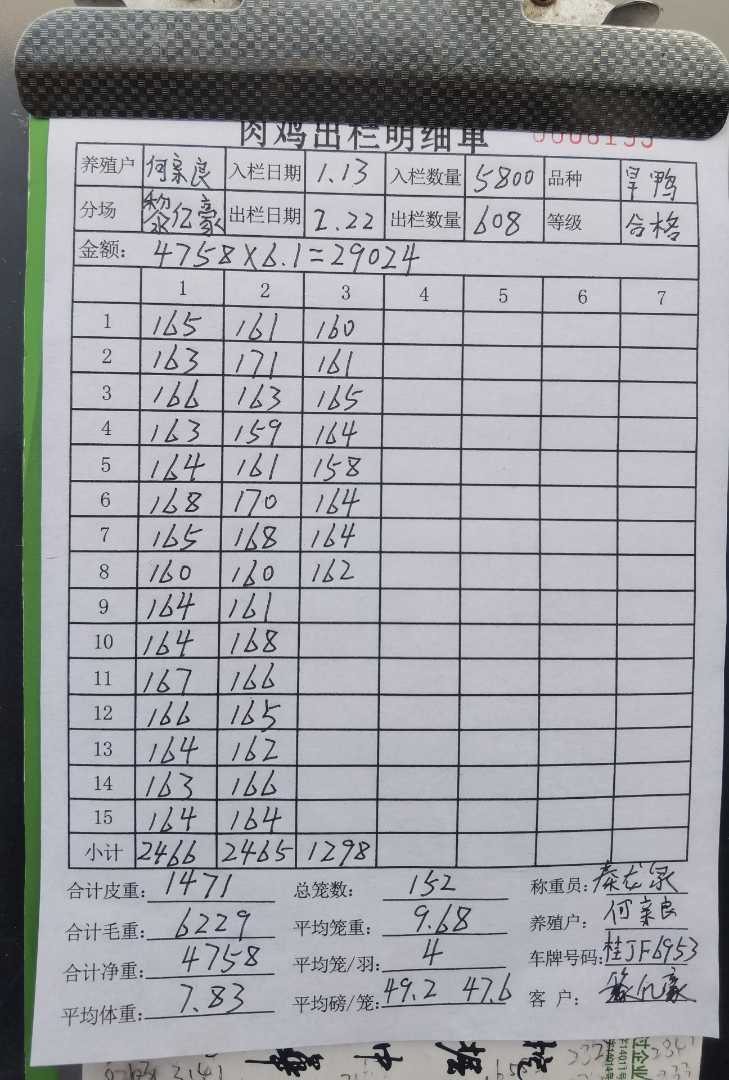 肉鸡出栏明细单 0006155
养殖户 何亲良 入栏日期 1.13 入栏数量 5800 品种 旱鸭
分场 黎亿豪 出栏日期 2.22 出栏数量 608 等级 合格
金额: 4758×6.1=29024
1 2 3 4 5 6 7
1 165 161 160
2 163 171 161
3 166 163 165
4 163 159 164
5 164 161 158
6 168 170 164
7 165 168 164
8 160 160 162
9 164 161
10 164 168
11 167 166
12 166 165
13 164 162
14 163 166
15 164 164
小计 2466 2465 1298
合计皮重: 1471 总笼数: 152 称重员: 秦龙泉
合计毛重: 6229 平均笼重: 9.68 养殖户: 何亲良
合计净重: 4758 平均笼/羽: 4 车牌号码: 桂JF6953
平均体重: 7.83 平均磅/笼: 49.2 47.6 客 户: 黎亿豪